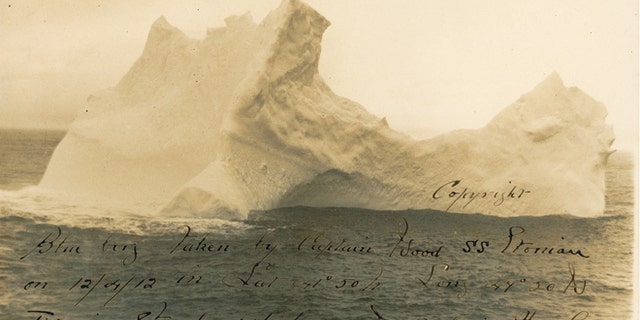 Copyright
Blue berg Taken by Captain Wood SS Etonian
on 12/4/12 in Lat 41°50 N Long 49°50 W